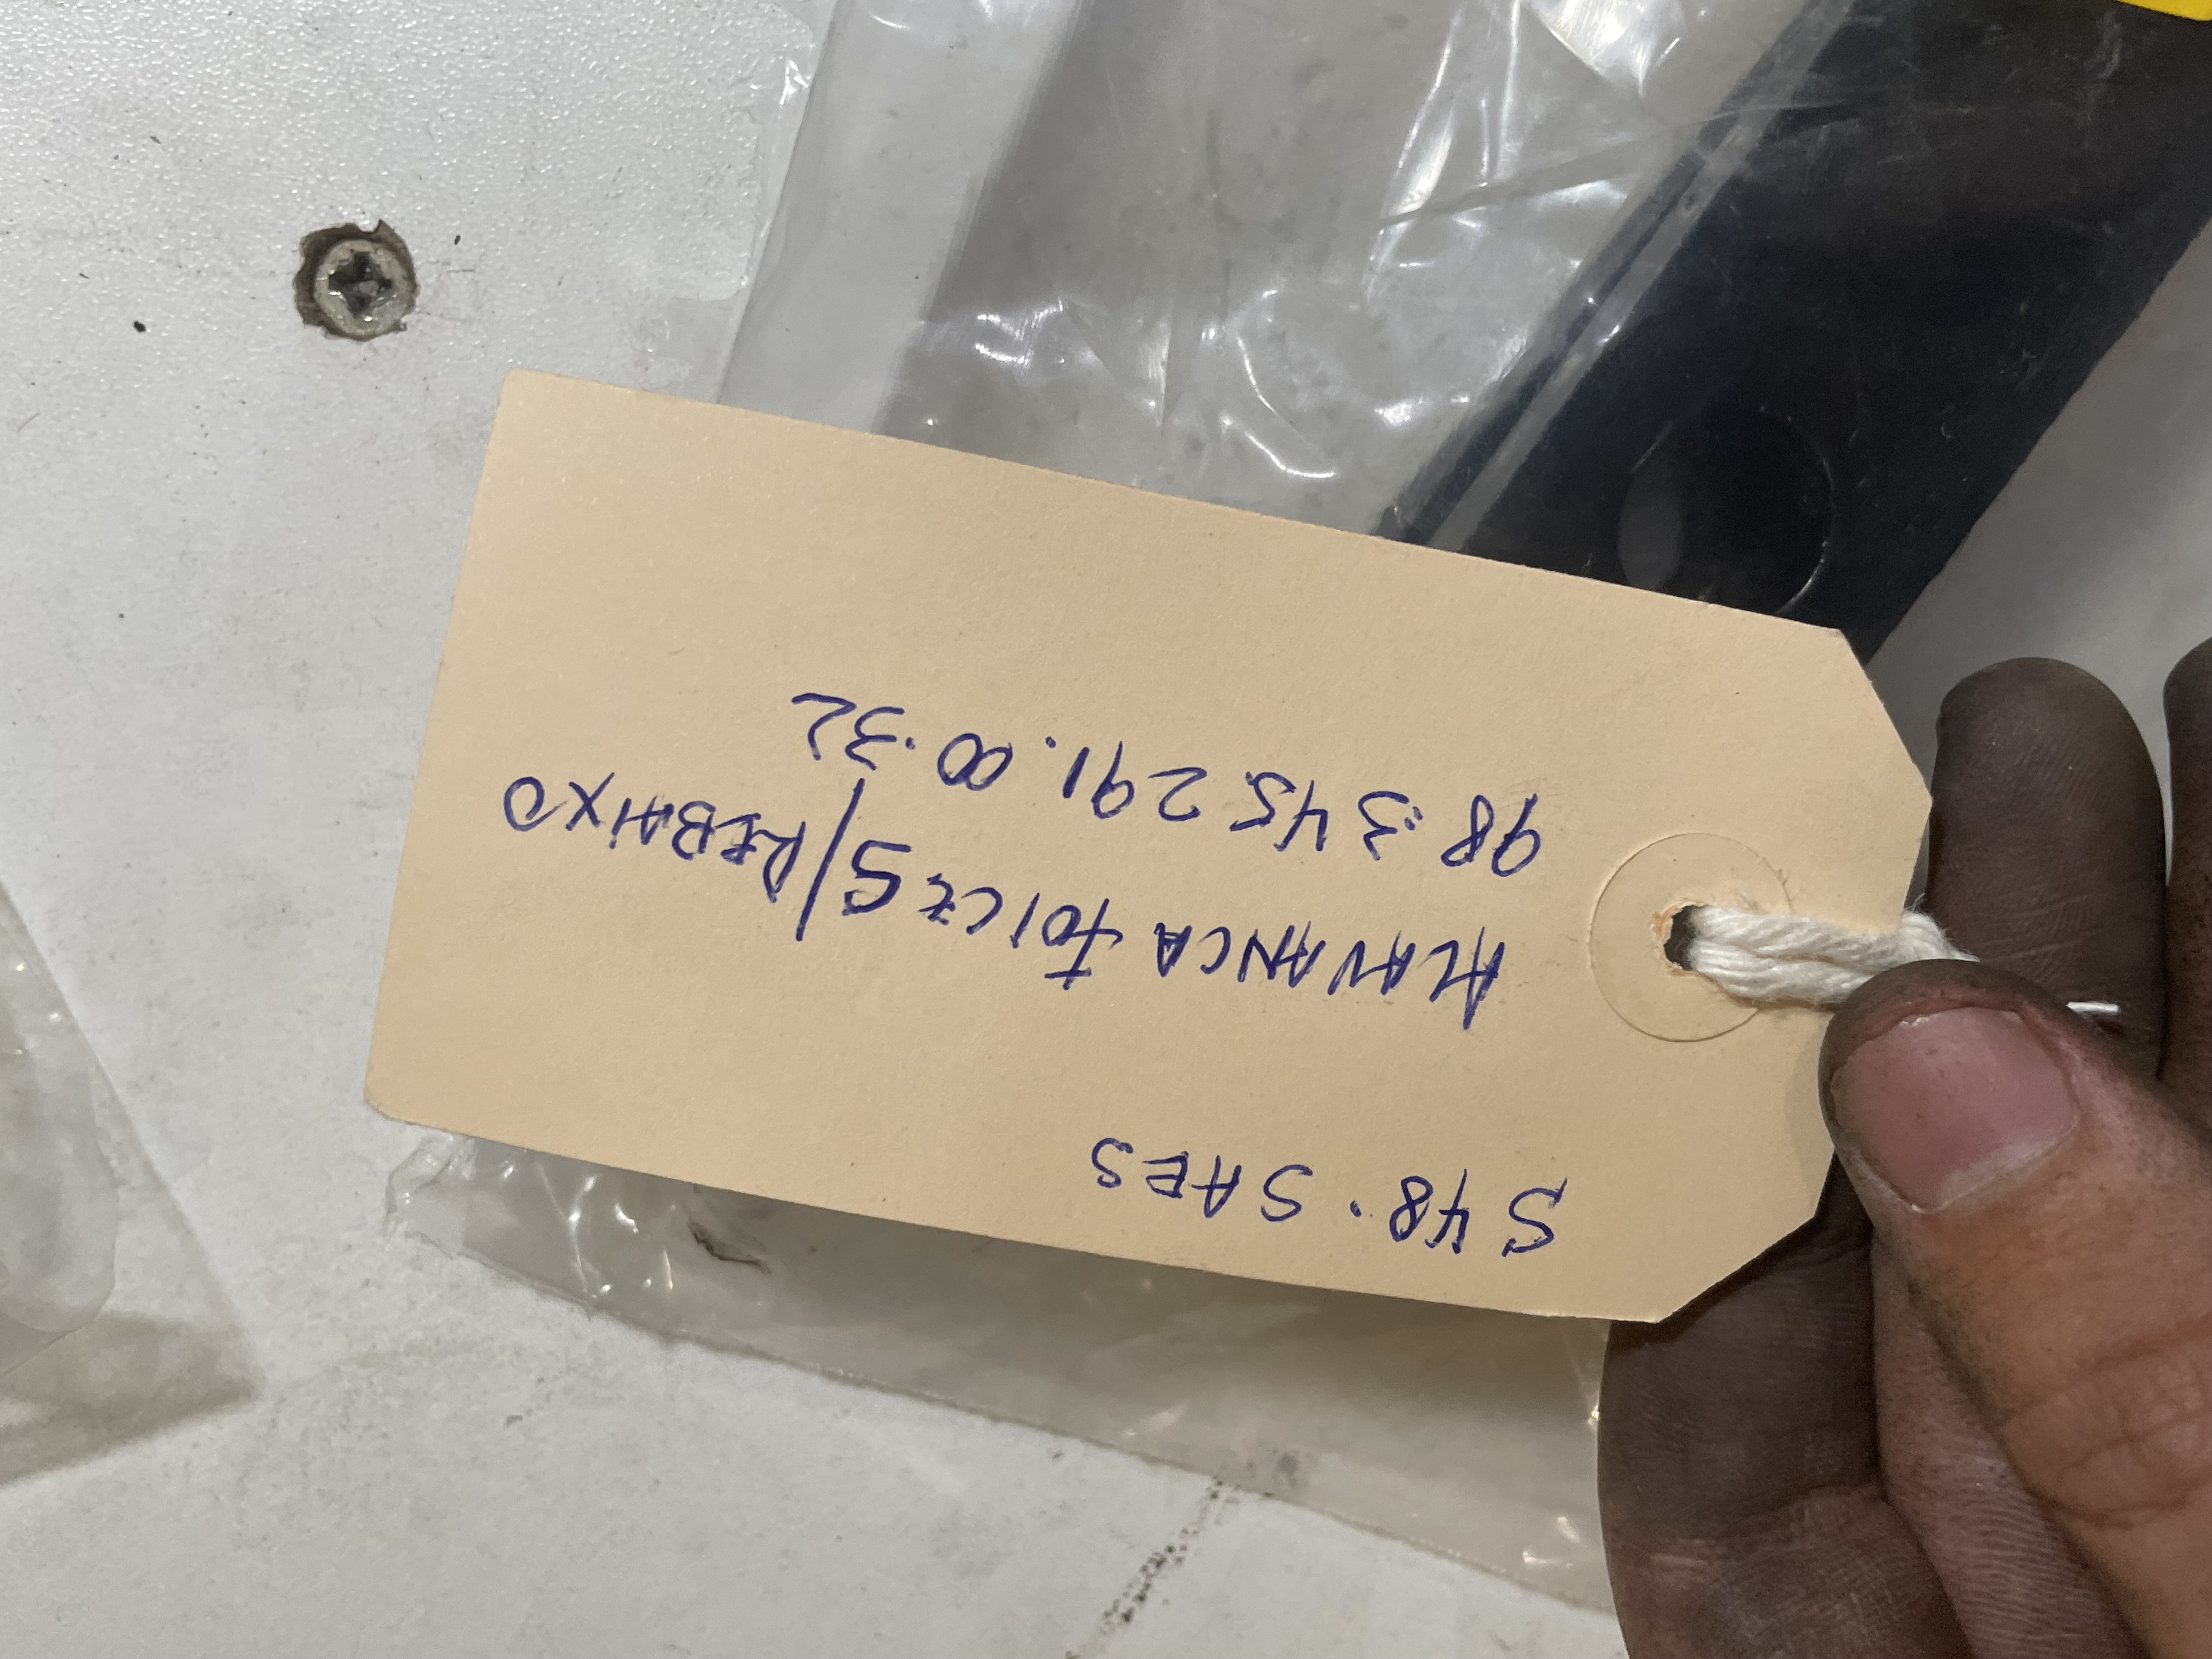 S 48. SAES
ALAVANCA FOICES/REBAIXO
98.345.291.00.32